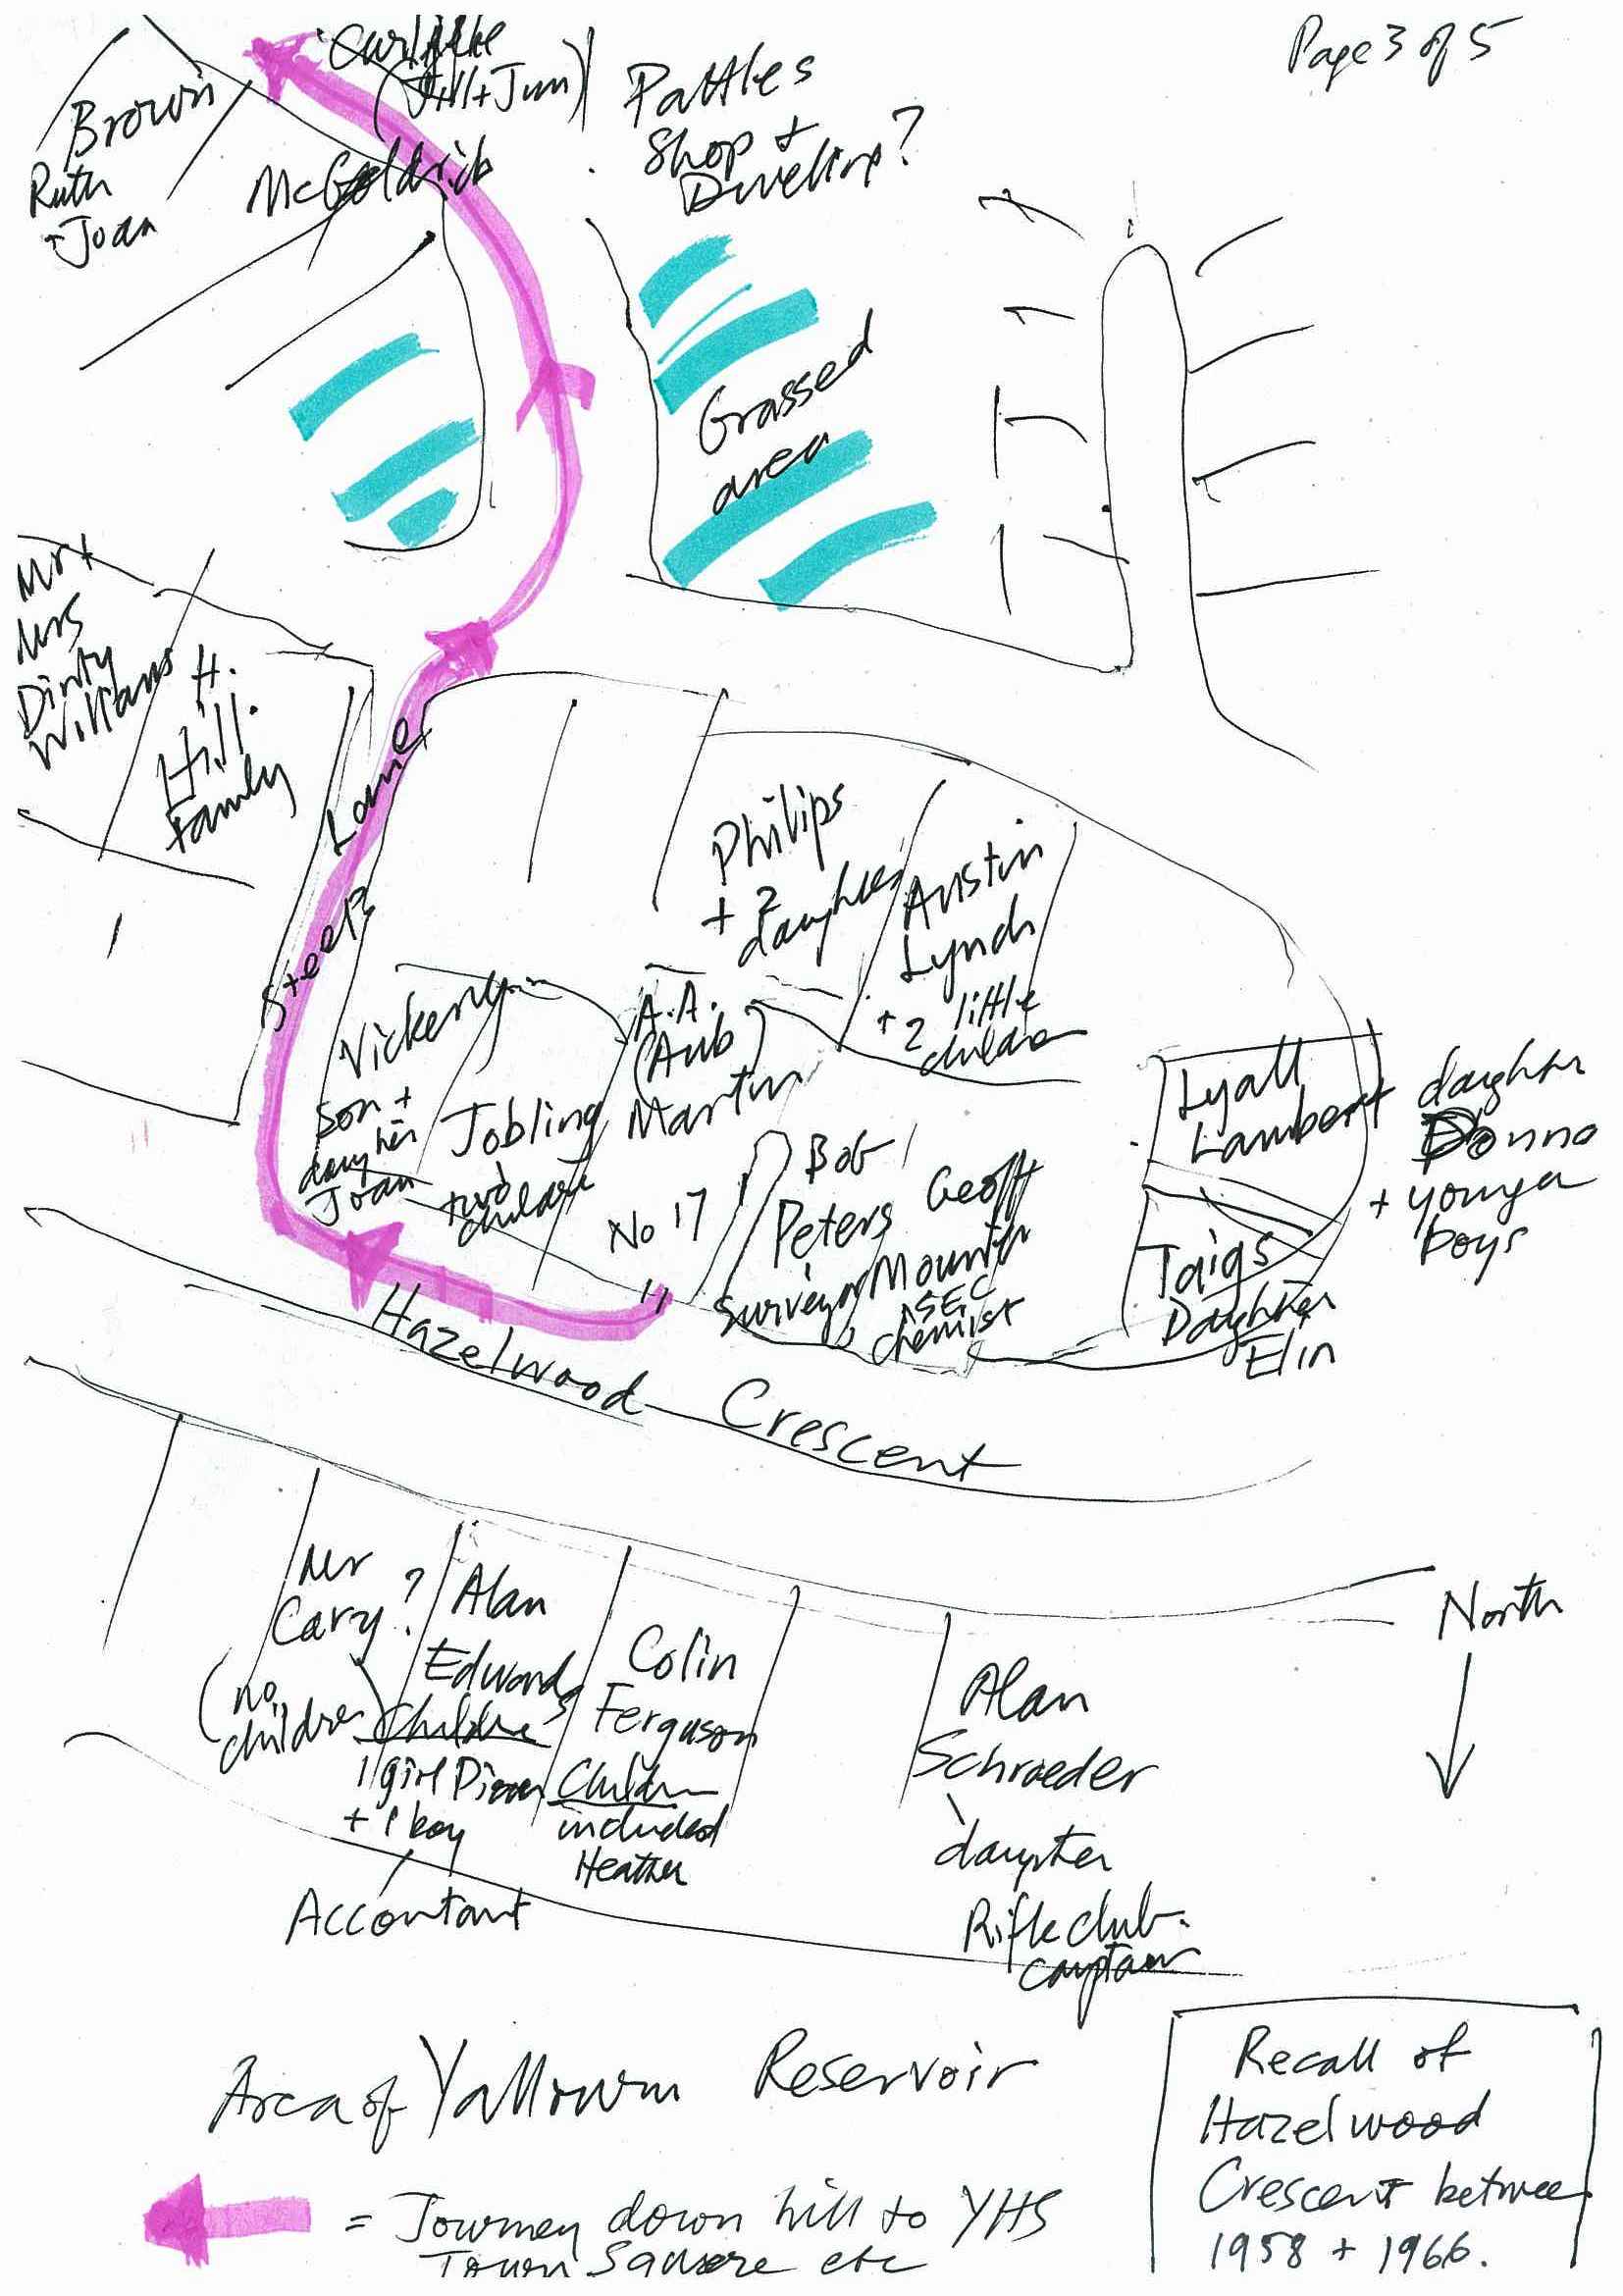 Page 3 of 5
(Jill + Jim)
Brown
Ruth
+ Joan
McGoldrick
Pattles
Shop +
Dwelling?
Grassed
area
Mr +
Mrs
Dirty
Williams
H.
Hill.
Family
Steep Lane
Philips
+ 2
daughters
Austin
Lynch
+ 2 little
children
Vickery
son +
daughter
Joan
Jobling
two
children
A.A.
(Aub)
Martin
No 17
Bob
Peters
Surveyor
Geoff
Mounter
SEC
chemist
Lyall
Lambert
daughter
Donna
+ younger
boys
Taigs
Daughter
Elin
Hazelwood Crescent
Mr
Cary?
(no
children)
Alan
Edwards
Children
1 girl
+ 1 boy
Accontant
Colin
Ferguson
Children
included
Heather
Alan
Schroeder
daughter
Rifle club
captain
North
Area of Yallourn Reservoir
= Journey down hill to YHS
Town Square etc
Recall of
Hazelwood
Crescent between
1958 + 1966.